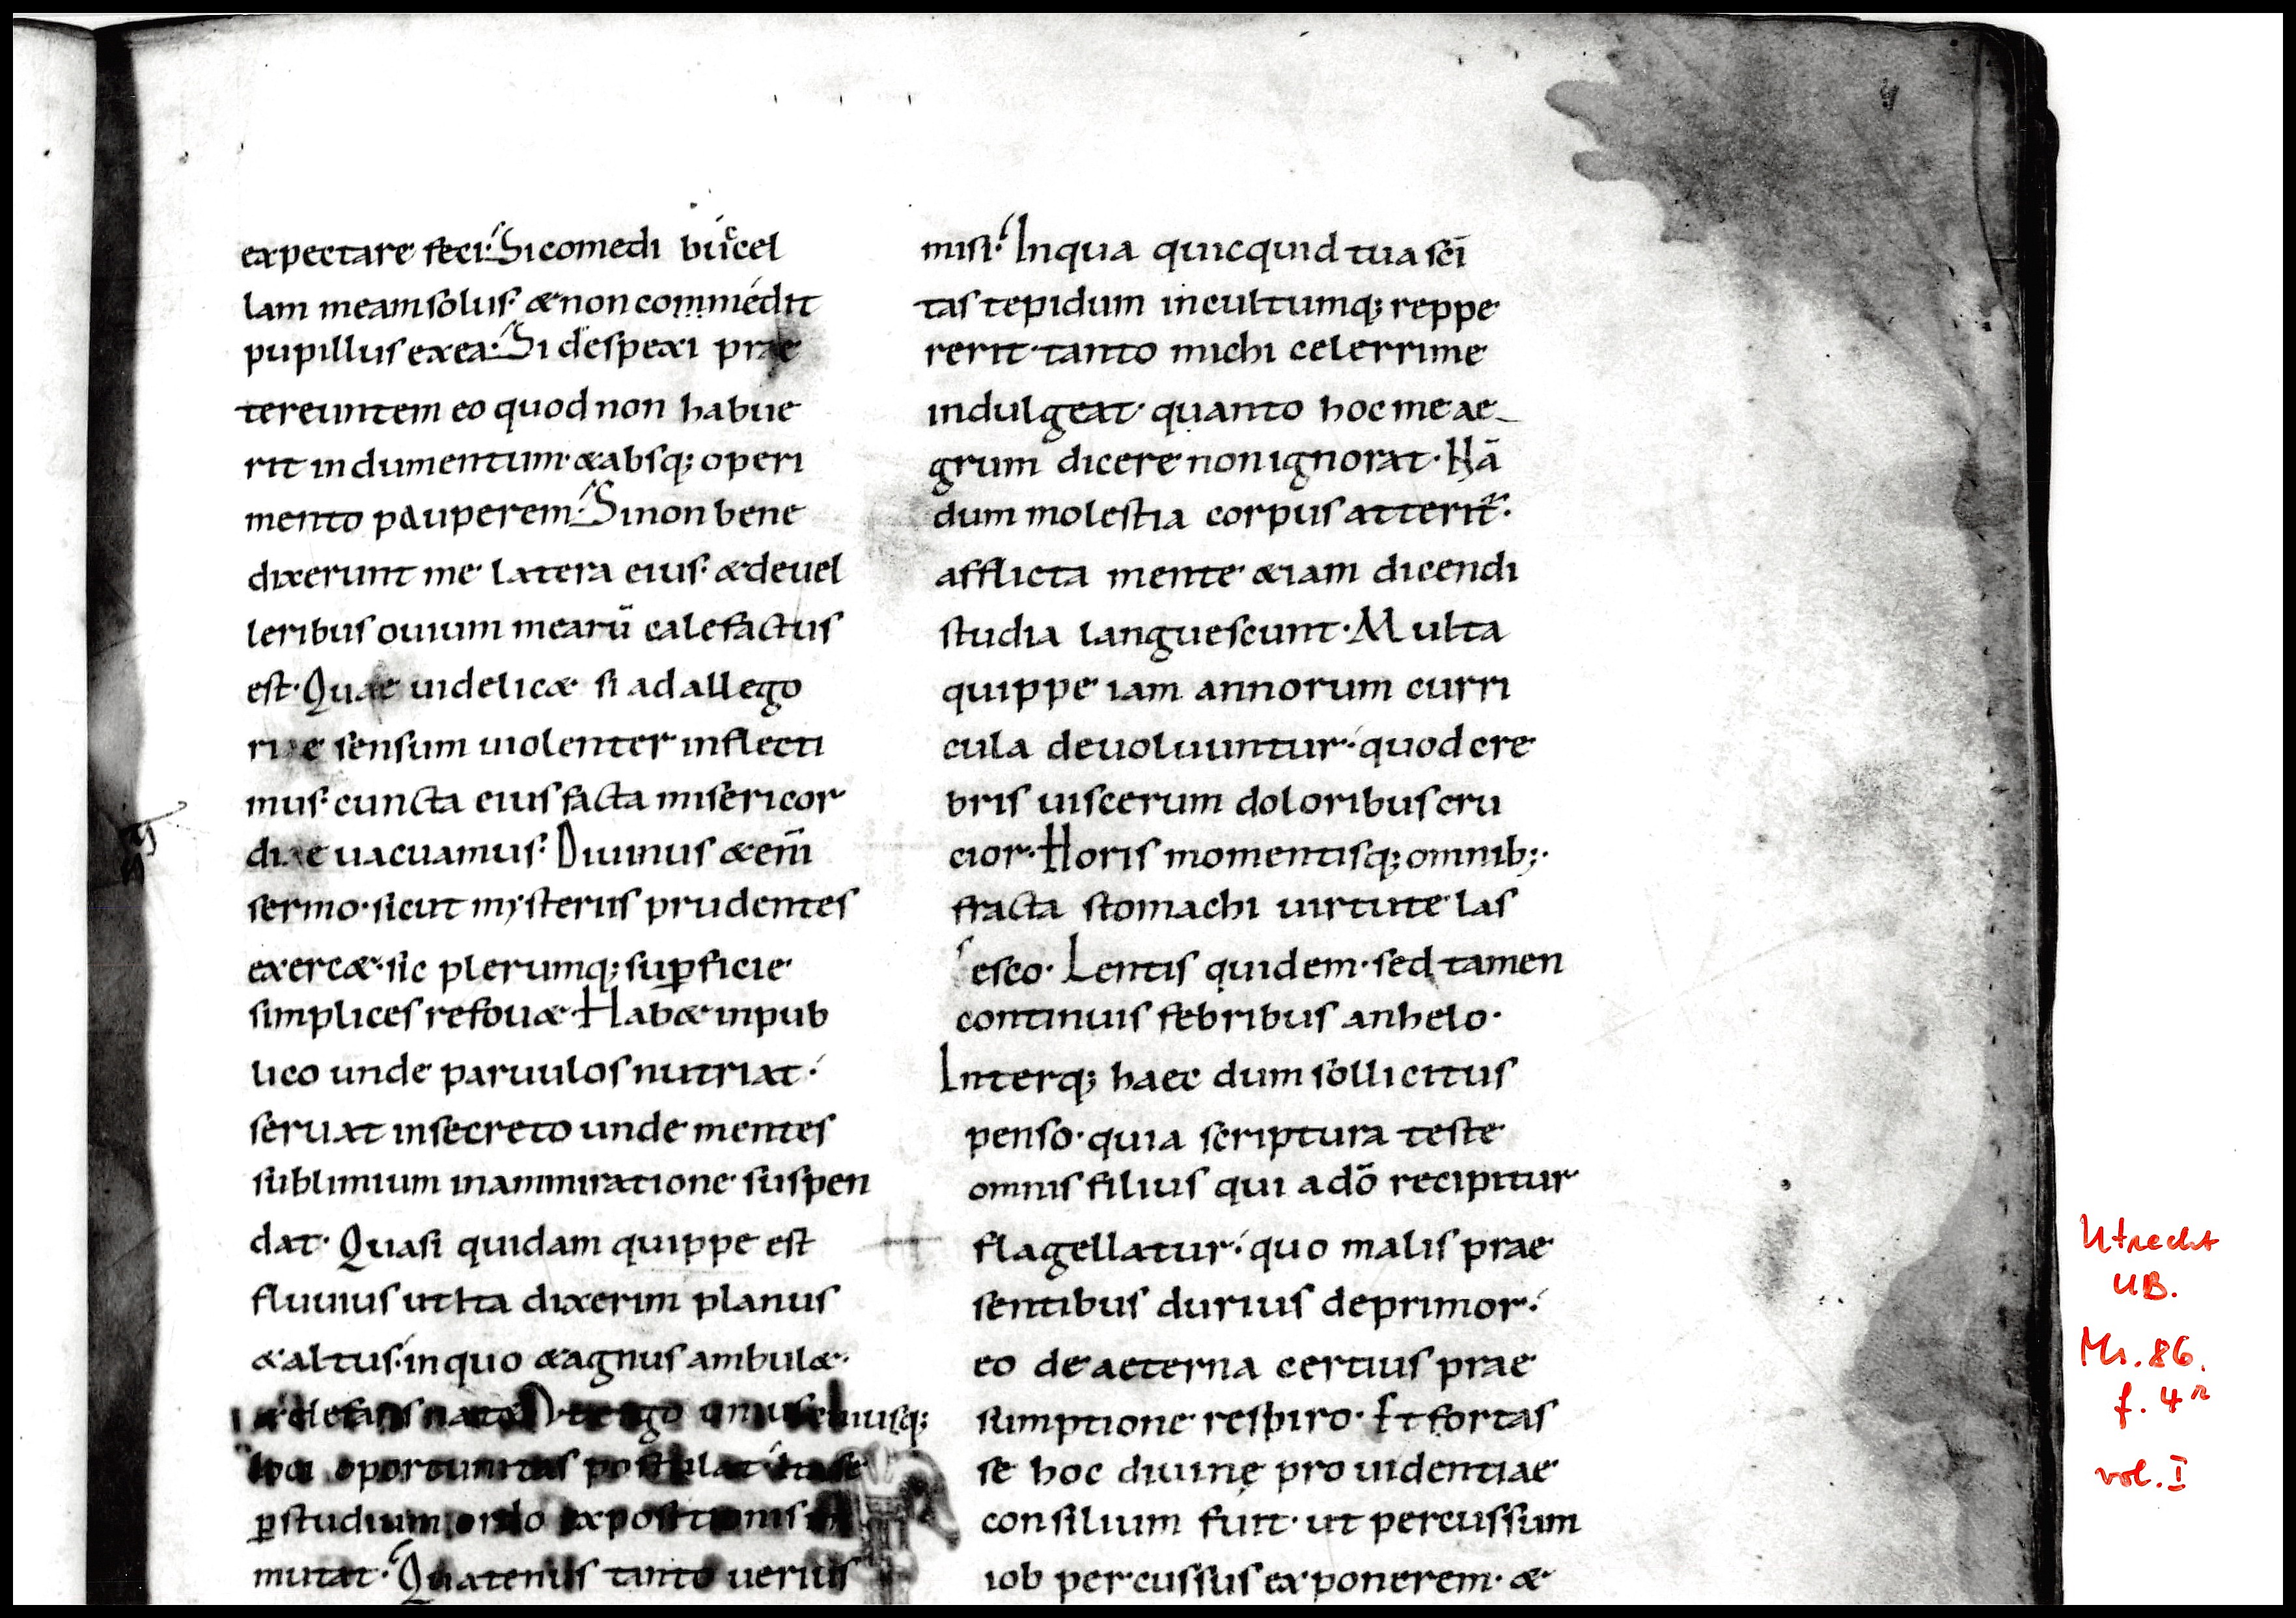 expectare feci. Si comedi buccel
lam meam solus. & non commedit
pupillus ex ea. Si despexi prae
tereuntem eo quod non habue
rit indumentum. & absq; operi
mento pauperem. Si non bene
dixerunt me latera eius. & de uel
leribus ouium mearū calefactus
est. Quae uidelic& si ad allego
riae sensum uiolenter inflecti
mus. cuncta eius facta misericor
diae uacuamus. Diuinus & em̄
sermo. sicut mysteriis prudentes
exerc&. sic plerumq; suꝑficie
simplices refou&. Hab& in pub
lico unde paruulos nutriat.
seruat in secreto unde mentes
sublimium in ammiratione suspen
dat. Quasi quidam quippe est
fluuius ut ita dixerim planus
& altus. in quo & agnus ambul&.
& elefans nat&. Ergo uniuscuiusq;
loci oportunitas postulat. ita se
ꝑ studium ordo expositionis in
mutat. Quatenus tanto uerius
misi. In qua quicquid tua sc̄i
tas tepidum incultumq; reppe
rerit. tanto michi celerrime
indulgeat. quanto hoc me ae
grum dicere non ignorat. Nā
dum molestia corpus atterit̄.
afflicta mente & iam dicendi
studia languescunt. Multa
quippe iam annorum curri
cula deuoluuntur. quod cre
bris uiscerum doloribus cru
cior. Horis momentisq; omnib;.
fracta stomachi uirtute las
sesco. Lentis quidem. sed tamen
continuis febribus anhelo.
Interq; haec dum sollicitus
penso. quia scriptura teste
omnis filius qui a dō recipitur
flagellatur. quo malis prae
sentibus durius deprimor.
eo de aeterna certius prae
sumptione respiro. Et fortas
se hoc diuinę prouidentiae
consilium fuit. ut percussum
iob percussus exponerem. &
Utrecht
UB.
Ms. 86.
f. 4r
vol. I